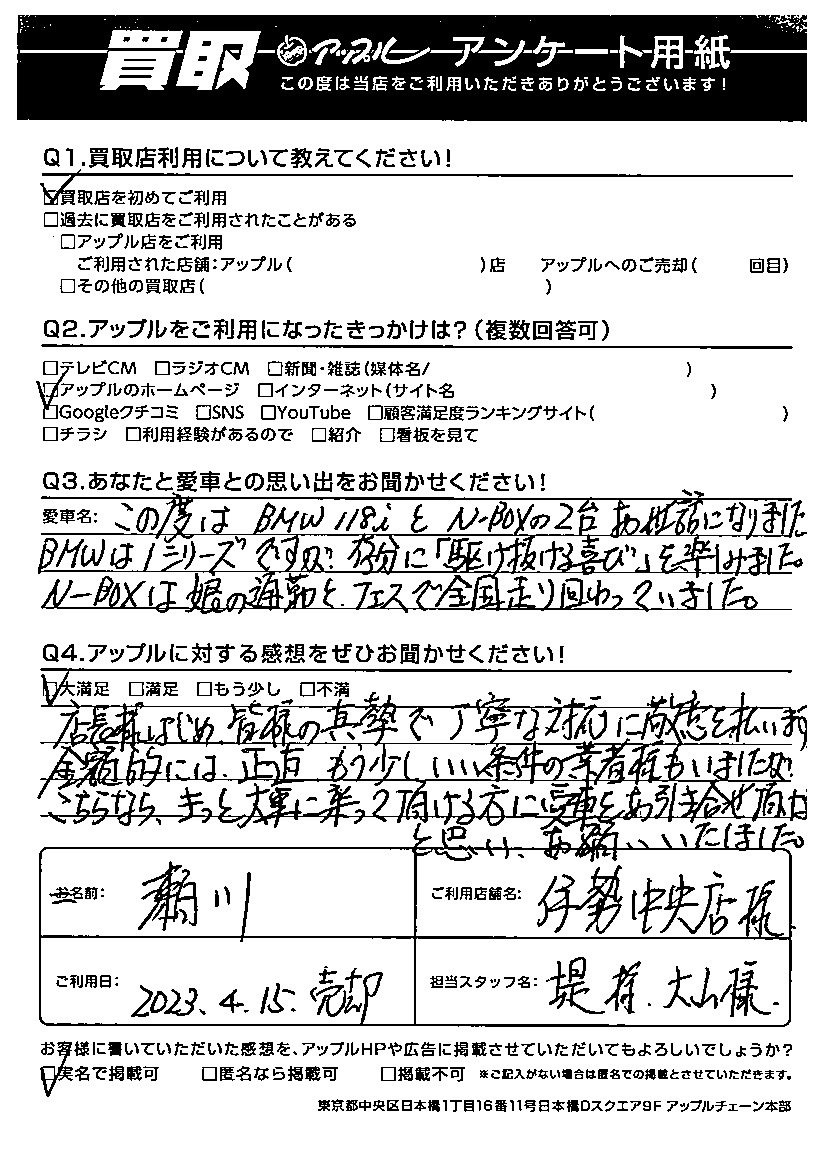 買取 アップル アンケート用紙
この度は当店をご利用いただきありがとうございます!
Q1.買取店利用について教えてください!
☑買取店を初めてご利用
□過去に買取店をご利用されたことがある
□アップル店をご利用
ご利用された店舗:アップル( )店 アップルへのご売却( 回目)
□その他の買取店( )
Q2.アップルをご利用になったきっかけは?(複数回答可)
□テレビCM □ラジオCM □新聞・雑誌(媒体名/ )
☑アップルのホームページ □インターネット(サイト名 )
□Googleクチコミ □SNS □YouTube □顧客満足度ランキングサイト( )
□チラシ □利用経験があるので □紹介 □看板を見て
Q3.あなたと愛車との思い出をお聞かせください!
愛車名: この度は BMW 118i と N-BOXの2台 お世話になりました
BMWは1シリーズですが、存分に「駆け抜ける喜び」を楽しみました。
N-BOXは娘の通勤と、フェスで全国走り回わっていました。
Q4.アップルに対する感想をぜひお聞かせください!
☑大満足 □満足 □もう少し □不満
店長様はじめ、皆様の真摯で丁寧な対応に敬意を払います
金額的には、正直 もう少しいい条件の業者様もいましたが
こちらなら、きっと大事に乗って頂ける方に愛車をお引き合せ頂け
と思い、お願いいたしました。
お名前: 瀬川 ご利用店舗名: 伊勢中央店様
ご利用日: 2023.4.15.売却 担当スタッフ名: 堤様.大山様.
お客様に書いていただいた感想を、アップルHPや広告に掲載させていただいてもよろしいでしょうか?
☑実名で掲載可 □匿名なら掲載可 □掲載不可 ※ご記入がない場合は匿名での掲載とさせていただきます。
東京都中央区日本橋1丁目16番11号日本橋Dスクエア9F アップルチェーン本部